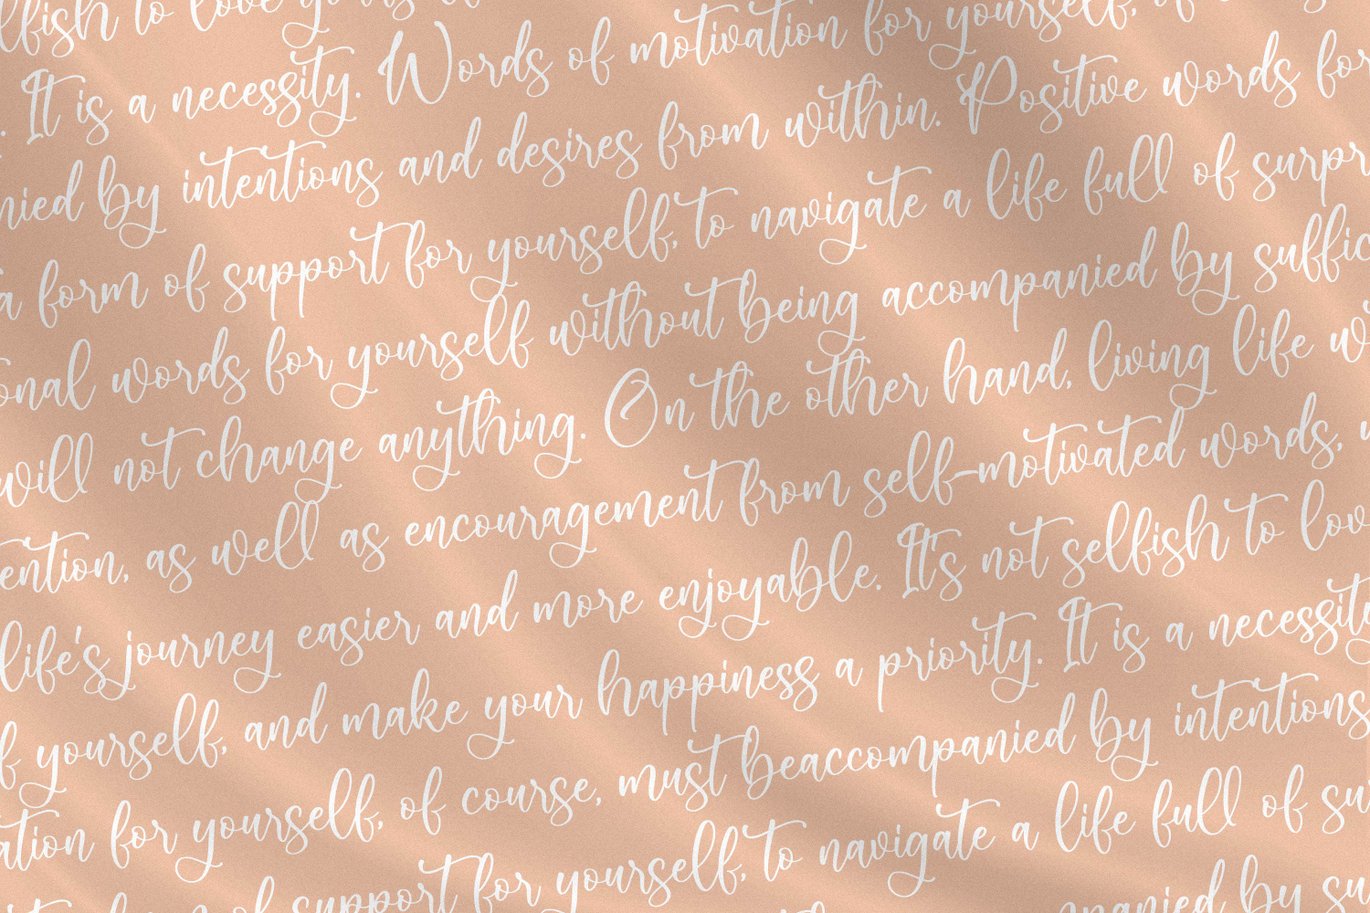 lfish to love yourself
. It is a necessity. Words of motivation for yourself, of
nied by intentions and desires from within. Positive words for
a form of support for yourself, to navigate a life full of surpr
onal words for yourself without being accompanied by suffic
will not change anything. On the other hand, living life w
ention, as well as encouragement from self-motivated words,
life's journey easier and more enjoyable. It's not selfish to lov
f yourself, and make your happiness a priority. It is a necessit
ation for yourself, of course, must beaccompanied by intentions
support for yourself, to navigate a life full of su
panied by su